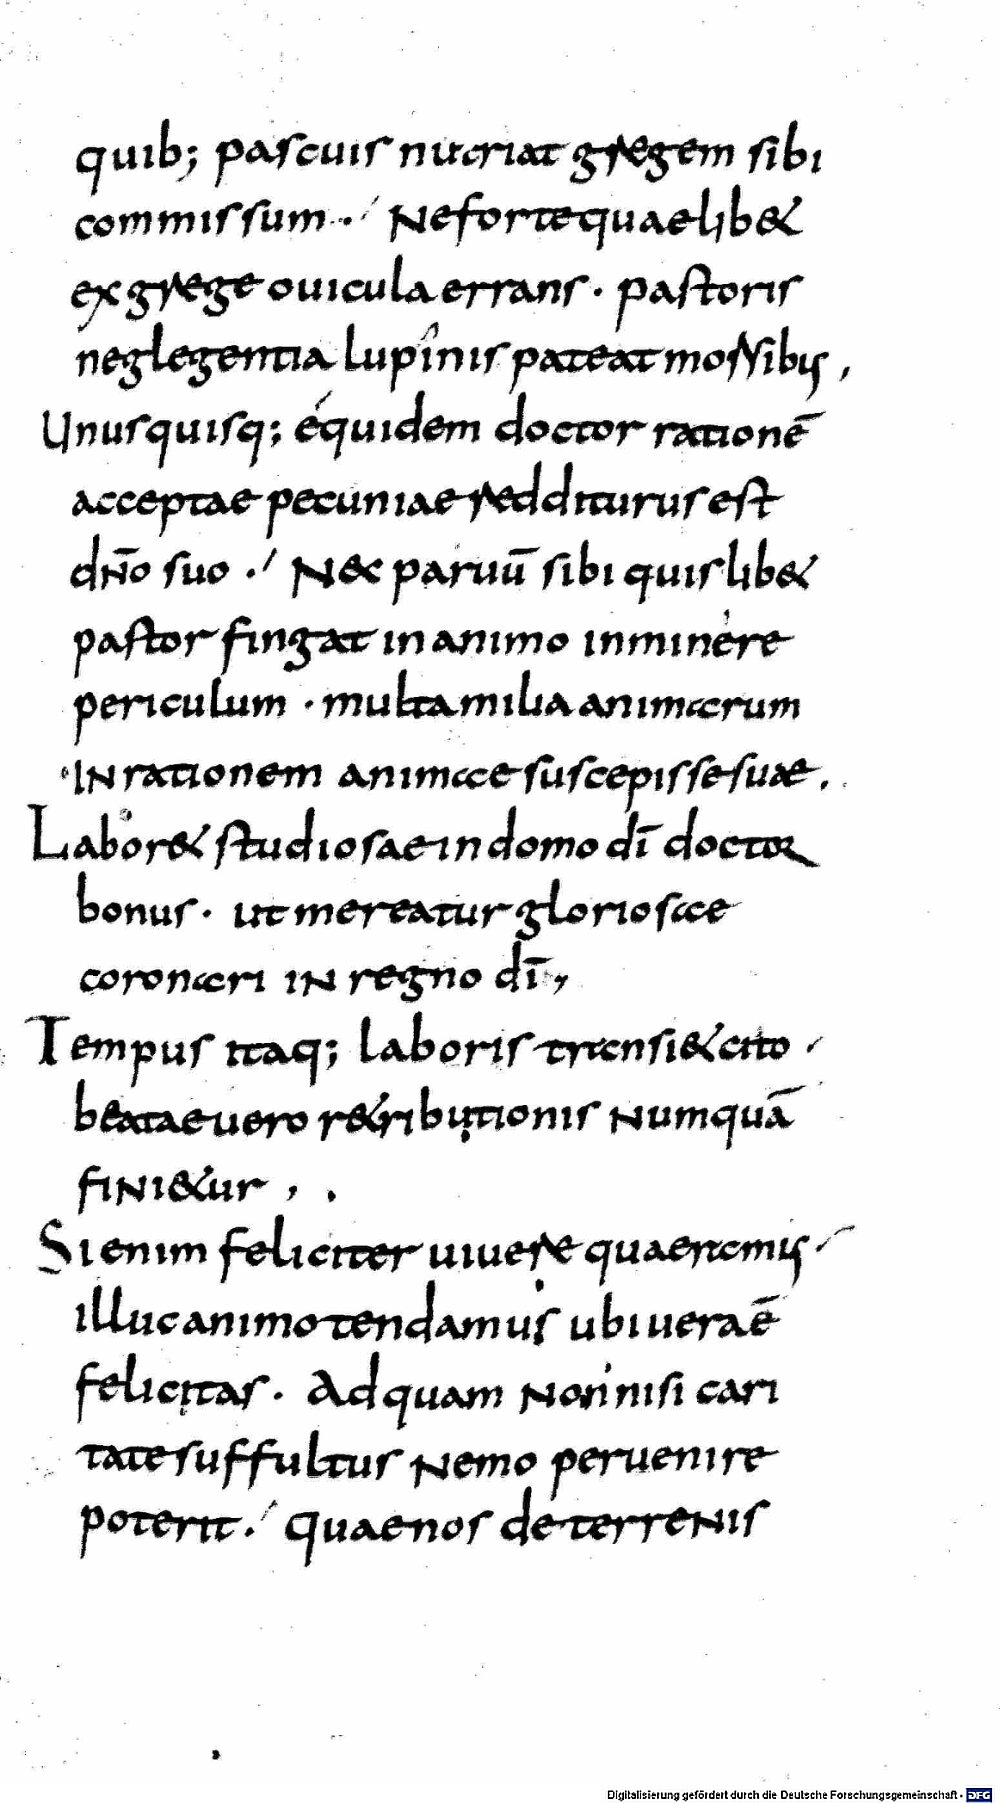 quib; pascuis nutriat gregem sibi
commissum · Ne forte quaelib&
ex grege ouicula errans · pastoris
neglegentia lupinis pateat morsibus,
Unusquisq; équidem doctor rationē
acceptae pecuniae redditurus est
dn̄o suo · Nec paruū sibi quislib&
pastor fingat in animo inminere
periculum · multa milia animarum
IN rationem animae suscepisse suae .
Labor& studiosae in domo dī doctor
bonus · ut mereatur gloriosae
coronari IN regno dī,
Tempus itaq; laboris transi& cito
beatae uero r&ributionis Numquā
fiNi&ur , .
Si enim feliciter uiuere quaerimus
illuc animo tendamus ubi uera ē
felicitas · Ad quam Non nisi cari
tate suffultus Nemo peruenire
poterit · quae nos de terreNis
Digitalisierung gefördert durch die Deutsche Forschungsgemeinschaft - DFG